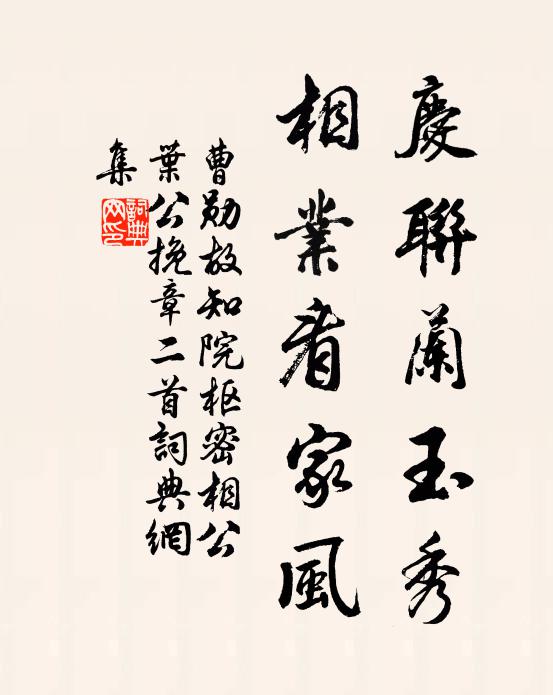 慶聯蘭玉秀
相業看家風
曹勛故知院枢密相公
葉公挽章二首詞典網
集
詞典網印